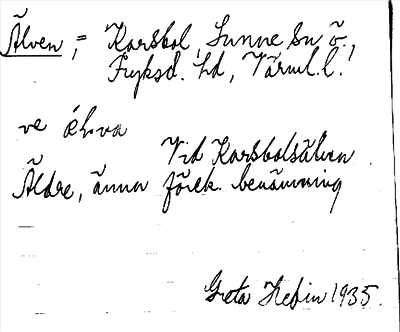 Älven, = Karsbol, Sunne sn ö.,
Fryksd. hd, Värml. l.
ve
Vid Karsbolsälven
Äldre, ännu förek. benämning
Greta Hefin 1935.